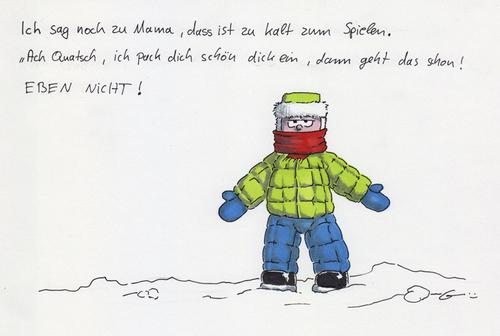 Ich sag noch zu Mama, dass ist zu kalt zum Spielen.
„Ach Quatsch, ich pack dich schön dick ein, dann geht das schon!
EBEN NICHT!